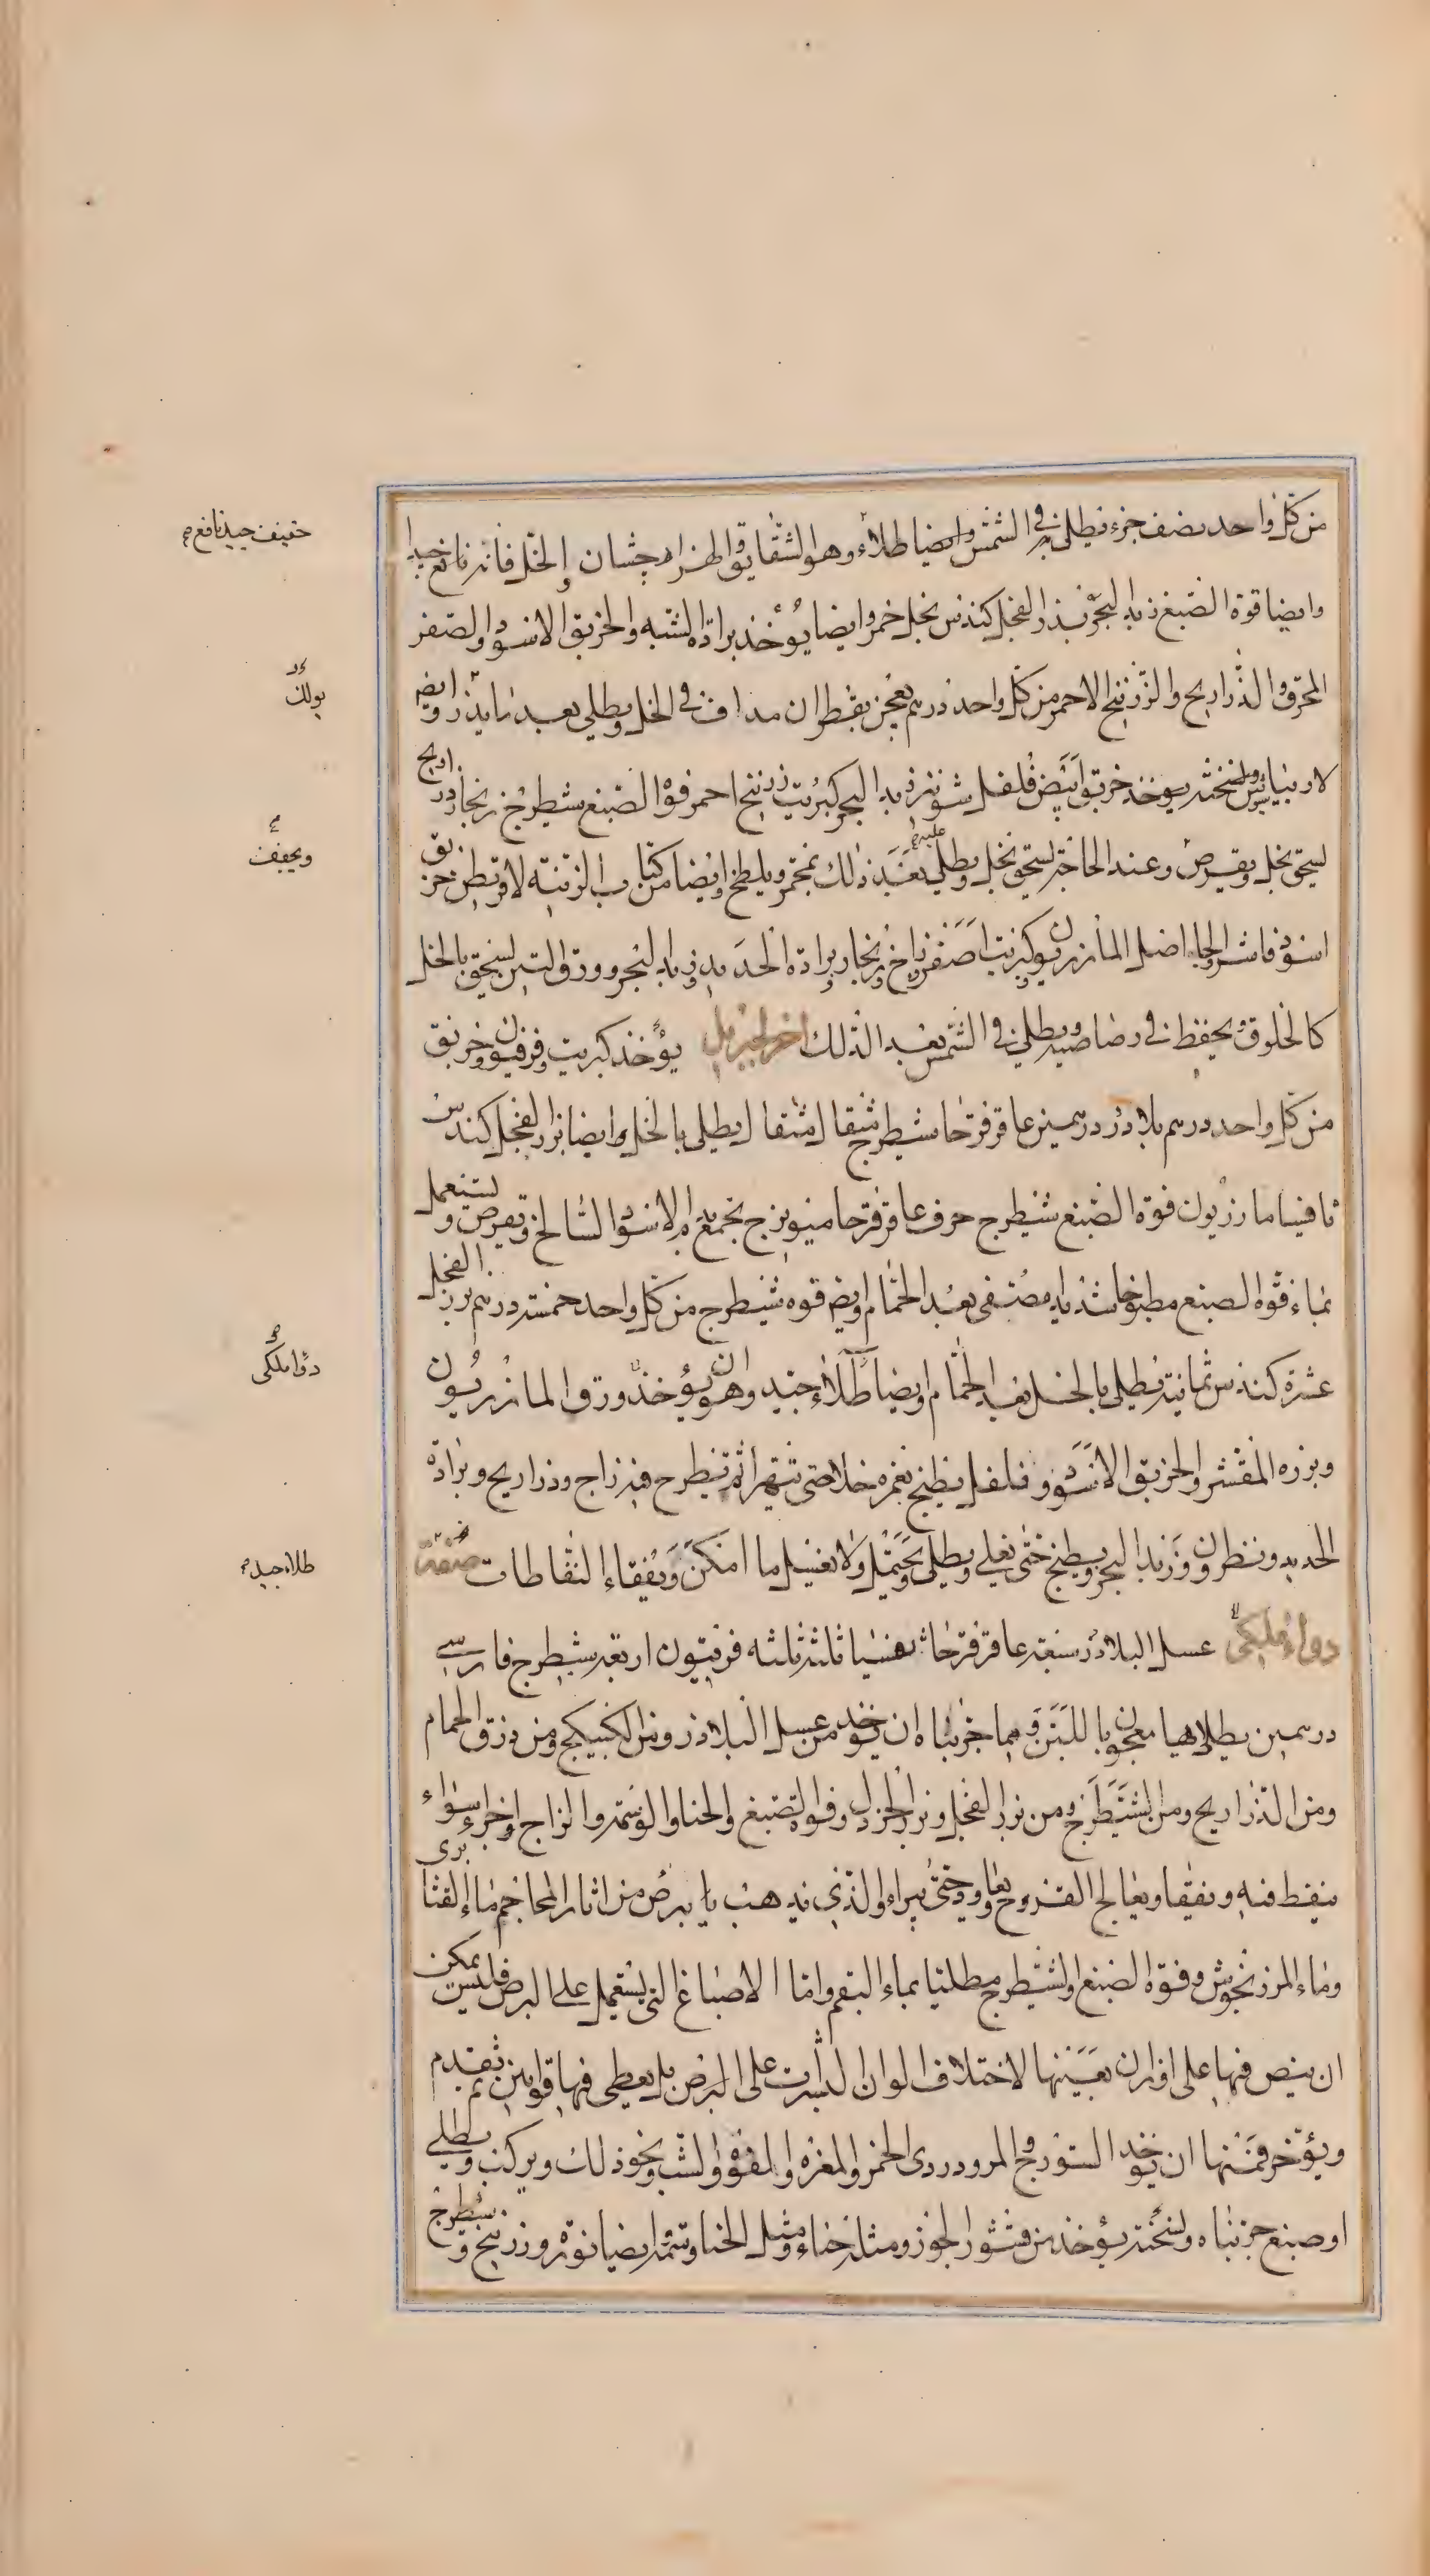 من كل واحد نصف جزء فيطلى به في الشمس وايضا طلاء وهو الشقايق الهزار جشان والخل فانه نافع جيدا
وايضا فوة الصبغ زبد البحر بذر الفجل كندس بخل خمر وايضا يؤخذ برادة الشبه والخربق الاسود والصفر
المحرق والذراريح والزرنيخ الاحمر من كل واحد درهم يعجن بقطران مداف في الخل ويطلى بعد وايضه
ونسخته يوخذ خربق ابيض فلفل شونيز زبد البحر كبريت زرنيخ احمر فوة الصبغ شيطرج زنجار ذراريح
يسحق بخل ويقرص وعند الحاجة يسحق بخل ويطلى عليه بعد ذلك ويلطخ وايضا من كتاب الزينة خربق
اسود فاشرا اصل المازريون كبريت اصفر زاج زنجار برادة الحديد وزبد البحر وورق التين يسحق بالخل
كالخلوق ويحفظ في رصاصية ويطلى في الشمس بعد الدلك اخر لجبريل يؤخذ كبريت وفرفيون وخربق
من كل واحد درهم بلادر درهمين عاقرقرحا شيطرج مثقال مثقال يطلى بالخل وايضا بزر الفجل كندس
ثافيسا مازريون فوة الصبغ شيطرج حرف عاقرقرحا ميويزج يجمع بدم الاسود السالخ ويقرص ويستعمل
بماء فوة الصبغ مطبوخا شديد مصفى بعد الحمام وايضه فوه شيطرج من كل واحد خمسة درهم بزر الفجل
عشرة كندس ثمانية يطلى بالخل بعد الحمام وايضا طلاء جيد وهو ان يؤخذ ورق المازريون
وبزره المقشر والخربق الاسود وفلفل يطبخ بغمره خلا حتى يتهرا ثم يطرح فيه زاج وذراريح وبرادة
الحديد ونطرون وزبد البحر ويطبخ حتى يغلى ويطلى ويحتمل ولا يغسل ما امكن ويفقاء النفاطات صفة
دواء ملكي عسل البلادر سبعة عاقرقرحا ثلثة ثلثه فربيون اربعة شيطرج فارسي
درهمين يطلى بها معجونا باللبن ومما جربناه ان يوخذ من عسل البلادر ومن الكبيكج ومن ذرق الحمام
ومن الذراريح ومن الشيطرج ومن بزر الفجل وبزر الخردل وفوة الصبغ والحنا والوسمة والزاج اجزاء سواء
ينقط فيه ويفقا ويعالج القروح ويعاود حتى يبراء والذي يذهب بالبرص من اثار المحاجم ماء القثا بري
وماء المرزنجوش وفوة الصبغ والشيطرج مطليا بماء البقم واما الاصباغ التي يستعمل على البرص فليس يمكن
ان ينص فيها على اوزان بعينها لاختلاف الوان البشرات على البرص بل يعطى فيها قوانين ثم يقدم
ويؤخر فمنها ان يوخذ السورج والمر ودردي الخمر والمغرة والفوة والشب ونحو ذلك ويركب ويطلى
او صبغ جربناه ونسخته يؤخذ من قشور الجوز ومثله حناء ومثل الحنا وسمة ايضا نورة وزرنيخ وشيطرج
خفيف جيد نافع
بولك
ويجفف
دوا ملكي
طلاء جيد